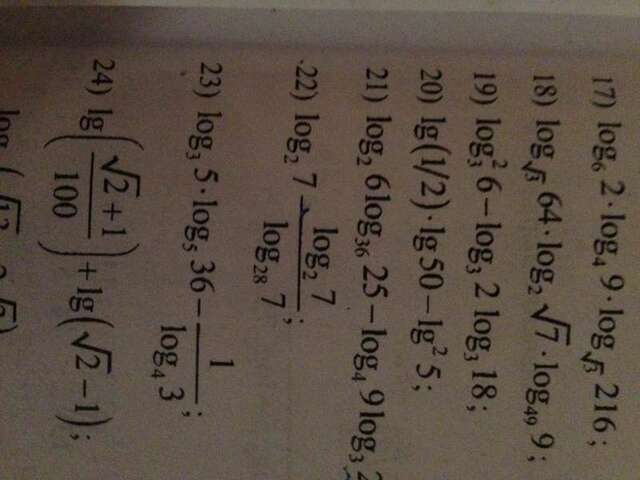 17) log₆ 2 · log₄ 9 · log_√3 216;
18) log_√3 64 · log₂ √7 · log₄₉ 9;
19) log₃² 6 − log₃ 2 log₃ 18;
20) lg(1/2) · lg 50 − lg² 5;
21) log₂ 6 log₃₆ 25 − log₄ 9 log₃
22) log₂ 7 − log₂ 7 / log₂₈ 7;
23) log₃ 5 · log₅ 36 − 1 / log₄ 3;
24) lg((√2 + 1) / 100) + lg(√2 − 1);